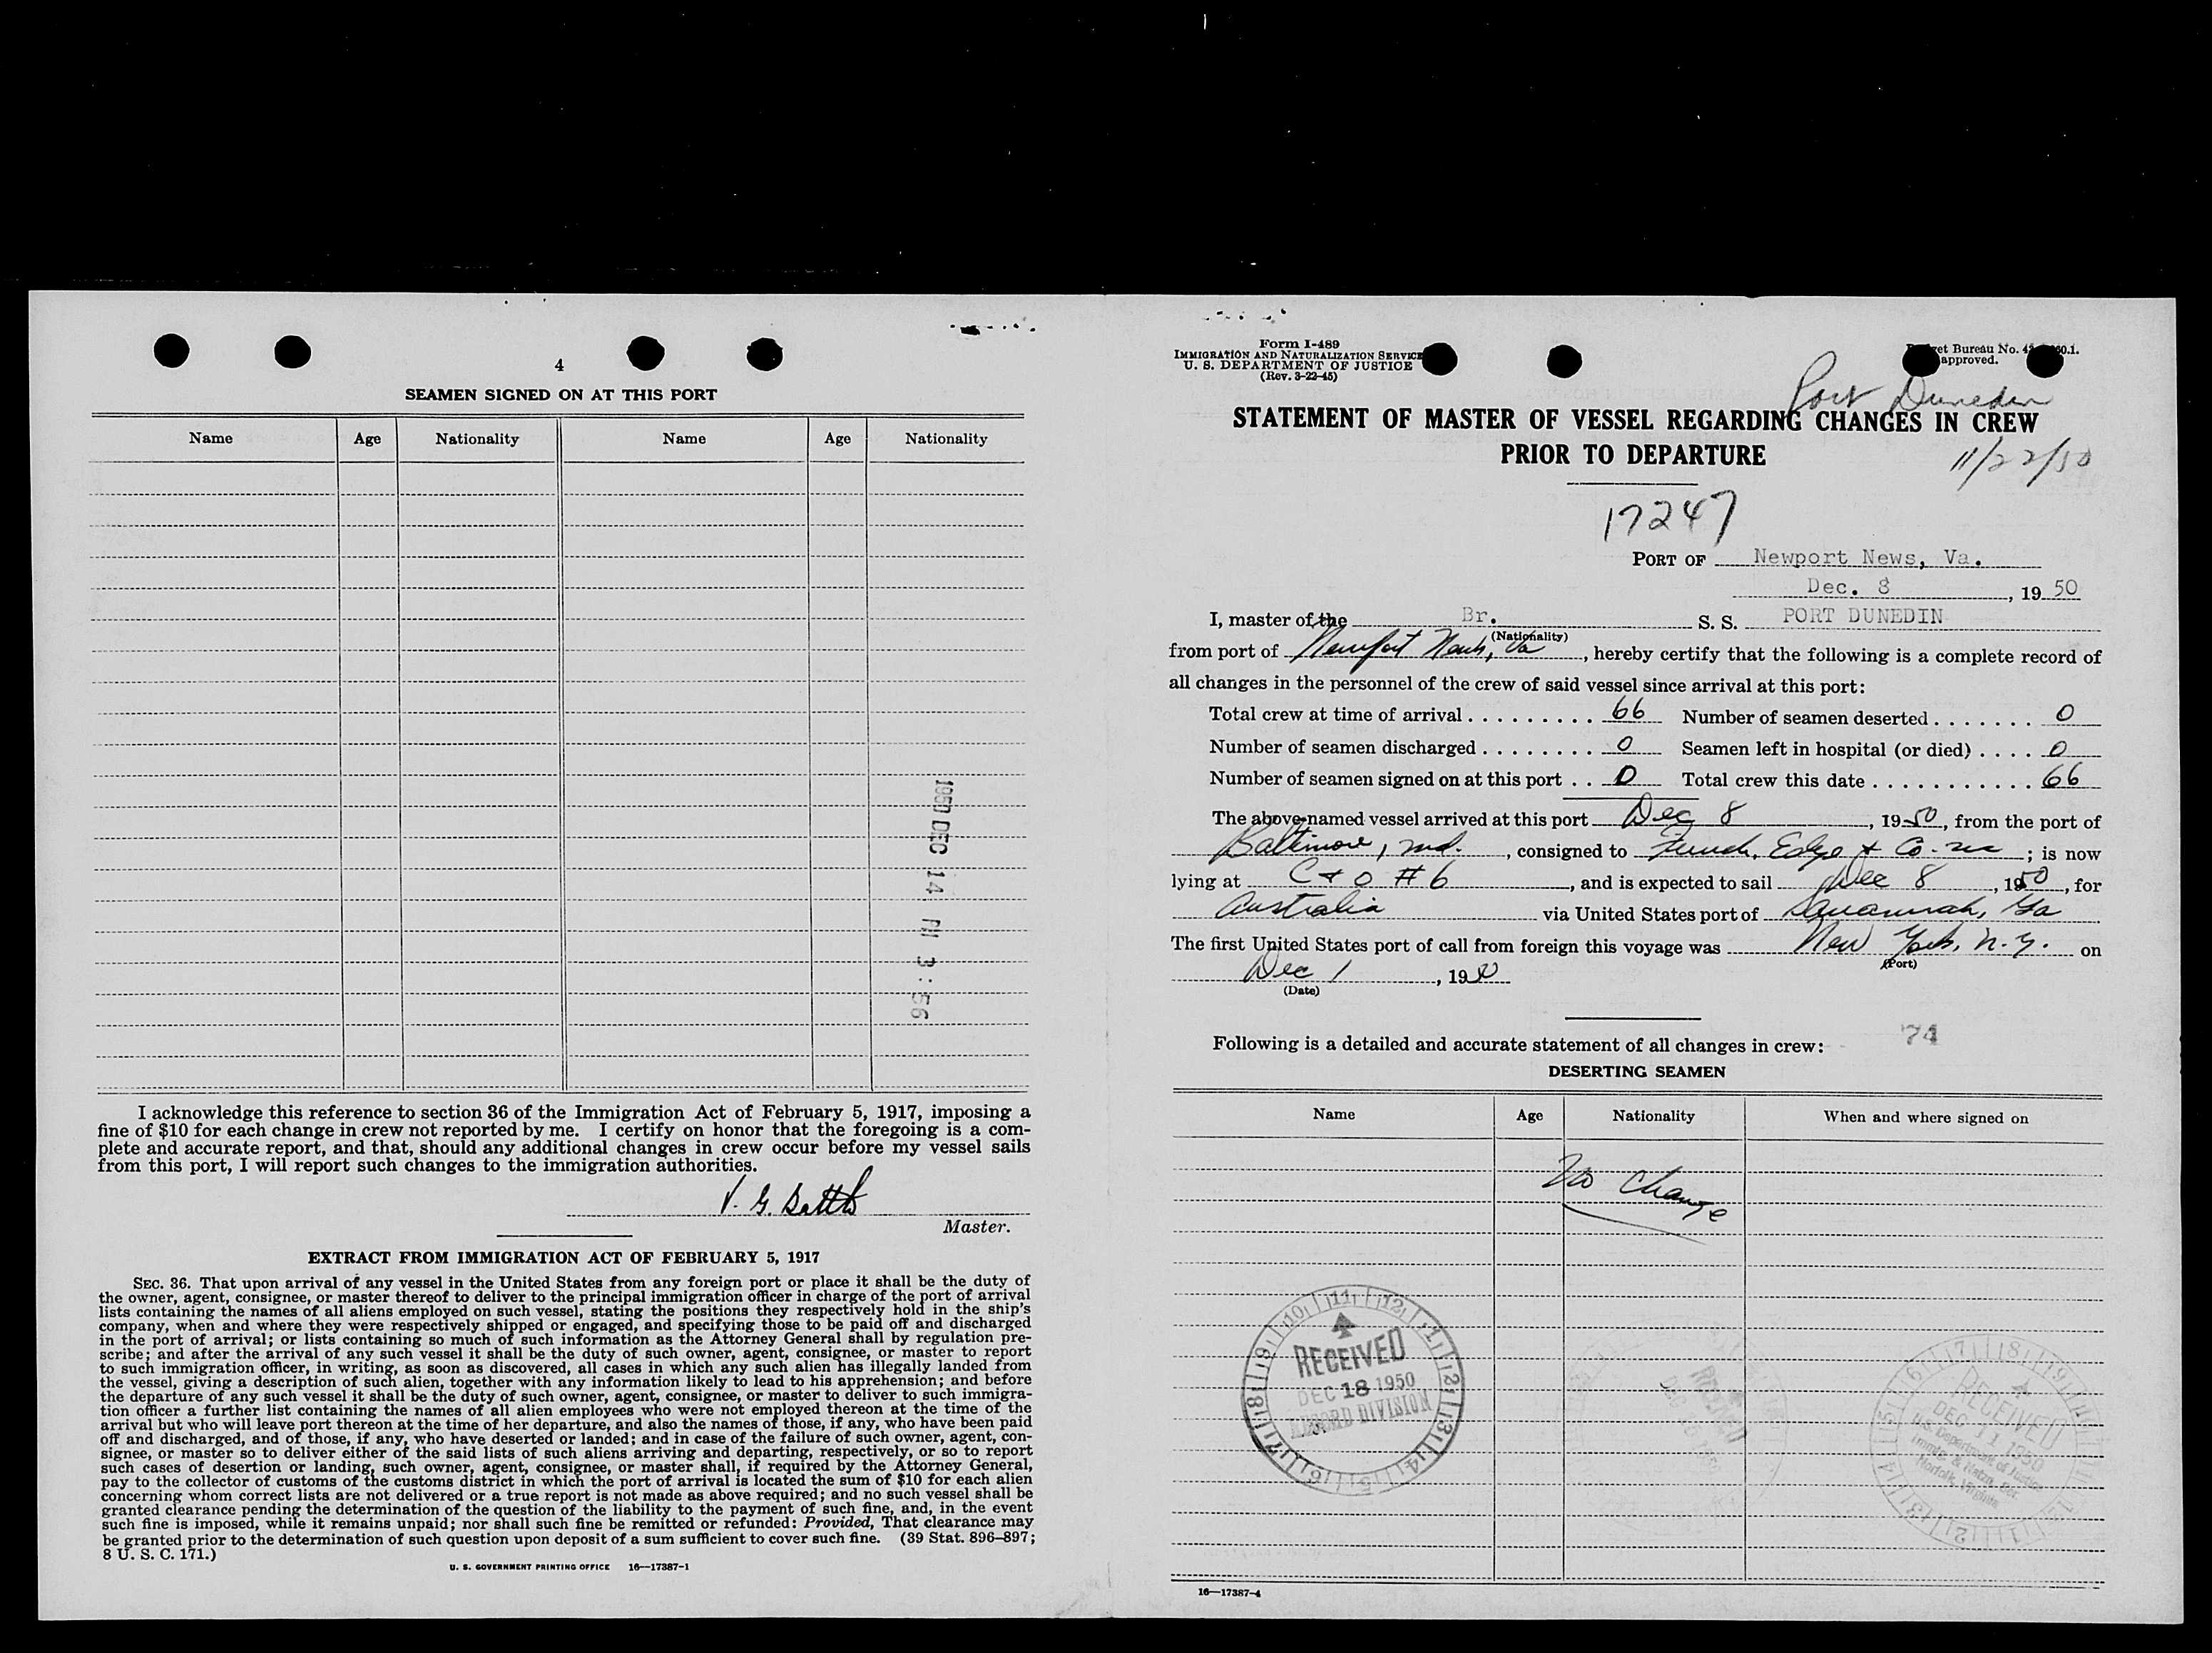 4
SEAMEN SIGNED ON AT THIS PORT
Name Age Nationality Name Age Nationality
1950 DEC 14 PM 3:56
I acknowledge this reference to section 36 of the Immigration Act of February 5, 1917, imposing a
fine of $10 for each change in crew not reported by me. I certify on honor that the foregoing is a com-
plete and accurate report, and that, should any additional changes in crew occur before my vessel sails
from this port, I will report such changes to the immigration authorities.
V. G. Battle
Master.
EXTRACT FROM IMMIGRATION ACT OF FEBRUARY 5, 1917
SEC. 36. That upon arrival of any vessel in the United States from any foreign port or place it shall be the duty of
the owner, agent, consignee, or master thereof to deliver to the principal immigration officer in charge of the port of arrival
lists containing the names of all aliens employed on such vessel, stating the positions they respectively hold in the ship's
company, when and where they were respectively shipped or engaged, and specifying those to be paid off and discharged
in the port of arrival; or lists containing so much of such information as the Attorney General shall by regulation pre-
scribe; and after the arrival of any such vessel it shall be the duty of such owner, agent, consignee, or master to report
to such immigration officer, in writing, as soon as discovered, all cases in which any such alien has illegally landed from
the vessel, giving a description of such alien, together with any information likely to lead to his apprehension; and before
the departure of any such vessel it shall be the duty of such owner, agent, consignee, or master to deliver to such immigra-
tion officer a further list containing the names of all alien employees who were not employed thereon at the time of the
arrival but who will leave port thereon at the time of her departure, and also the names of those, if any, who have been paid
off and discharged, and of those, if any, who have deserted or landed; and in case of the failure of such owner, agent, con-
signee, or master so to deliver either of the said lists of such aliens arriving and departing, respectively, or so to report
such cases of desertion or landing, such owner, agent, consignee, or master shall, if required by the Attorney General,
pay to the collector of customs of the customs district in which the port of arrival is located the sum of $10 for each alien
concerning whom correct lists are not delivered or a true report is not made as above required; and no such vessel shall be
granted clearance pending the determination of the question of the liability to the payment of such fine, and, in the event
such fine is imposed, while it remains unpaid; nor shall such fine be remitted or refunded: Provided, That clearance may
be granted prior to the determination of such question upon deposit of a sum sufficient to cover such fine. (39 Stat. 896–897;
8 U. S. C. 171.)
U. S. GOVERNMENT PRINTING OFFICE 16—17387-1
Form I-489
IMMIGRATION AND NATURALIZATION SERVICE
U. S. DEPARTMENT OF JUSTICE
(Rev. 3-22-45)
Bureau No.
approved.
Port Dunedin
STATEMENT OF MASTER OF VESSEL REGARDING CHANGES IN CREW
PRIOR TO DEPARTURE
11/22/50
17247
PORT OF Newport News, Va.
Dec. 8, 19 50
I, master of the Br. S. S. PORT DUNEDIN
(Nationality)
from port of Newport News, Va, hereby certify that the following is a complete record of
all changes in the personnel of the crew of said vessel since arrival at this port:
Total crew at time of arrival . . . . . . . . . 66 Number of seamen deserted . . . . . . . 0
Number of seamen discharged . . . . . . . . 0 Seamen left in hospital (or died) . . . . 0
Number of seamen signed on at this port . . 0 Total crew this date . . . . . . . . . . . 66
The above-named vessel arrived at this port Dec 8, 1950, from the port of
Baltimore, Md., consigned to Edye & Co. ; is now
lying at C & O # 6, and is expected to sail Dec 8, 1950, for
Australia via United States port of Savannah, Ga
The first United States port of call from foreign this voyage was New York, N. Y. on
(Port)
Dec 1, 1950
(Date)
74
Following is a detailed and accurate statement of all changes in crew:
DESERTING SEAMEN
Name Age Nationality When and where signed on
No Change
RECEIVED
DEC 18 1950
RECORD DIVISION
RECEIVED
DEC 11 1950
U.S. Department of Justice
Immig. & Natzn. Ser.
Norfolk, Virginia
16—17387-4